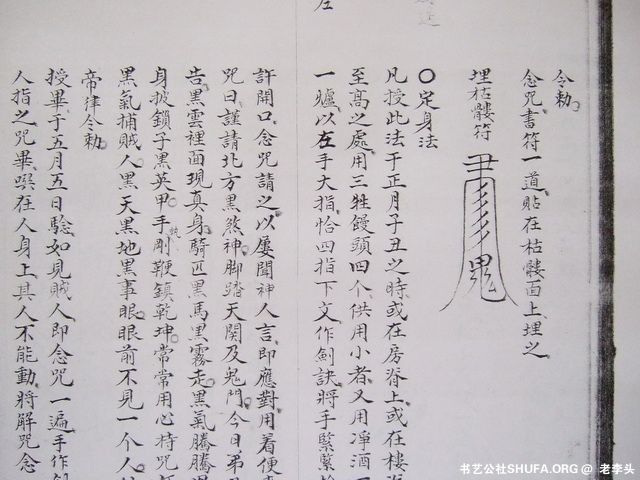 令勅
念咒書符一道貼在枯髏面上埋之
埋枯髏符
〇定身法
凡授此法于正月子丑之時或在房脊上或在樓
至髙之處用三牲饅頭四个供用小者又用淖酒一
一爐以在手大指恰四指下文作劍訣將手緊
許開口念咒請之以屢聞神人言即應對用着便
咒曰謹請北方黒煞神脚踏天関及鬼門今日弟
告黒雲裡面現真身騎匹黒馬黒霧走黒氣騰騰
身披鎖子黒英甲手剛鞭鎮乾坤常常用心持咒
執
黒氣捕賊人黒天黒地黒事眼眼前不見一个人
帝律令勅
授畢于五月五日驗如見賊人即念咒一遍手作
人指之咒畢噀在人身上其人不能動將解咒念
左
书艺公社SHUFA.ORG @ 老李头